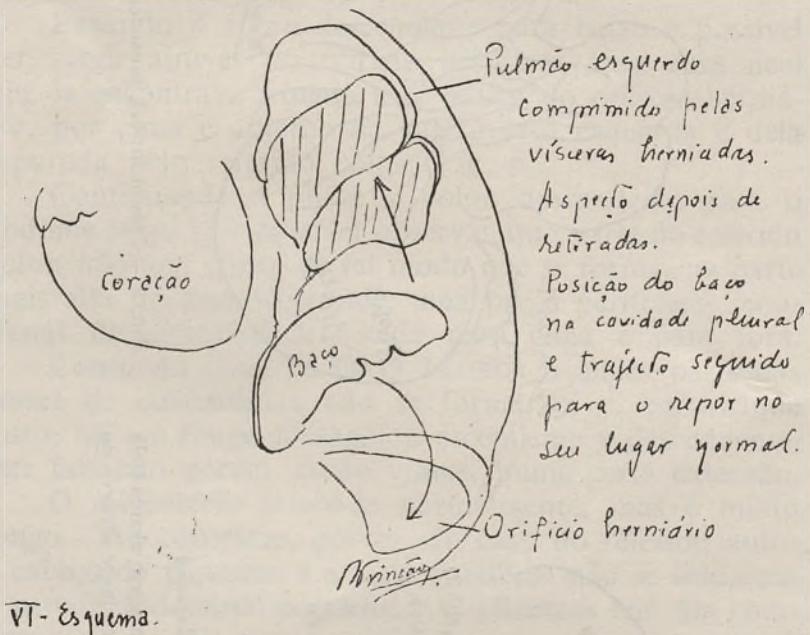 Pulmão esquerdo
comprimido pelas
vísceras herniadas.
Aspecto depois de
retiradas.
Posição do baço
na cavidade pleural
e trajecto seguido
para o repor no
seu lugar normal.
Coração
Baço
Orifício herniário
VI - Esquema.